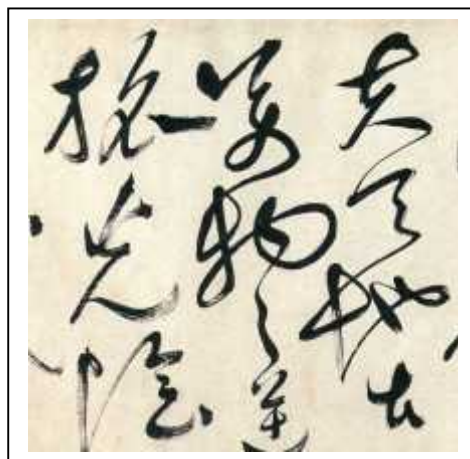 夫天地者
萬物之逆
旅光陰